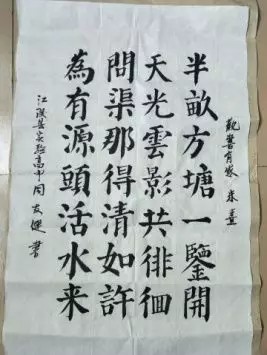 觀書有感 朱熹
半畝方塘一鑒開
天光雲影共徘徊
問渠那得清如許
為有源頭活水来
江陵县实验高中周友健書